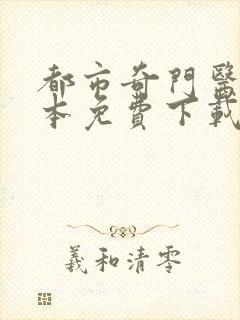 都市奇門醫
本免費下載
羲和清零